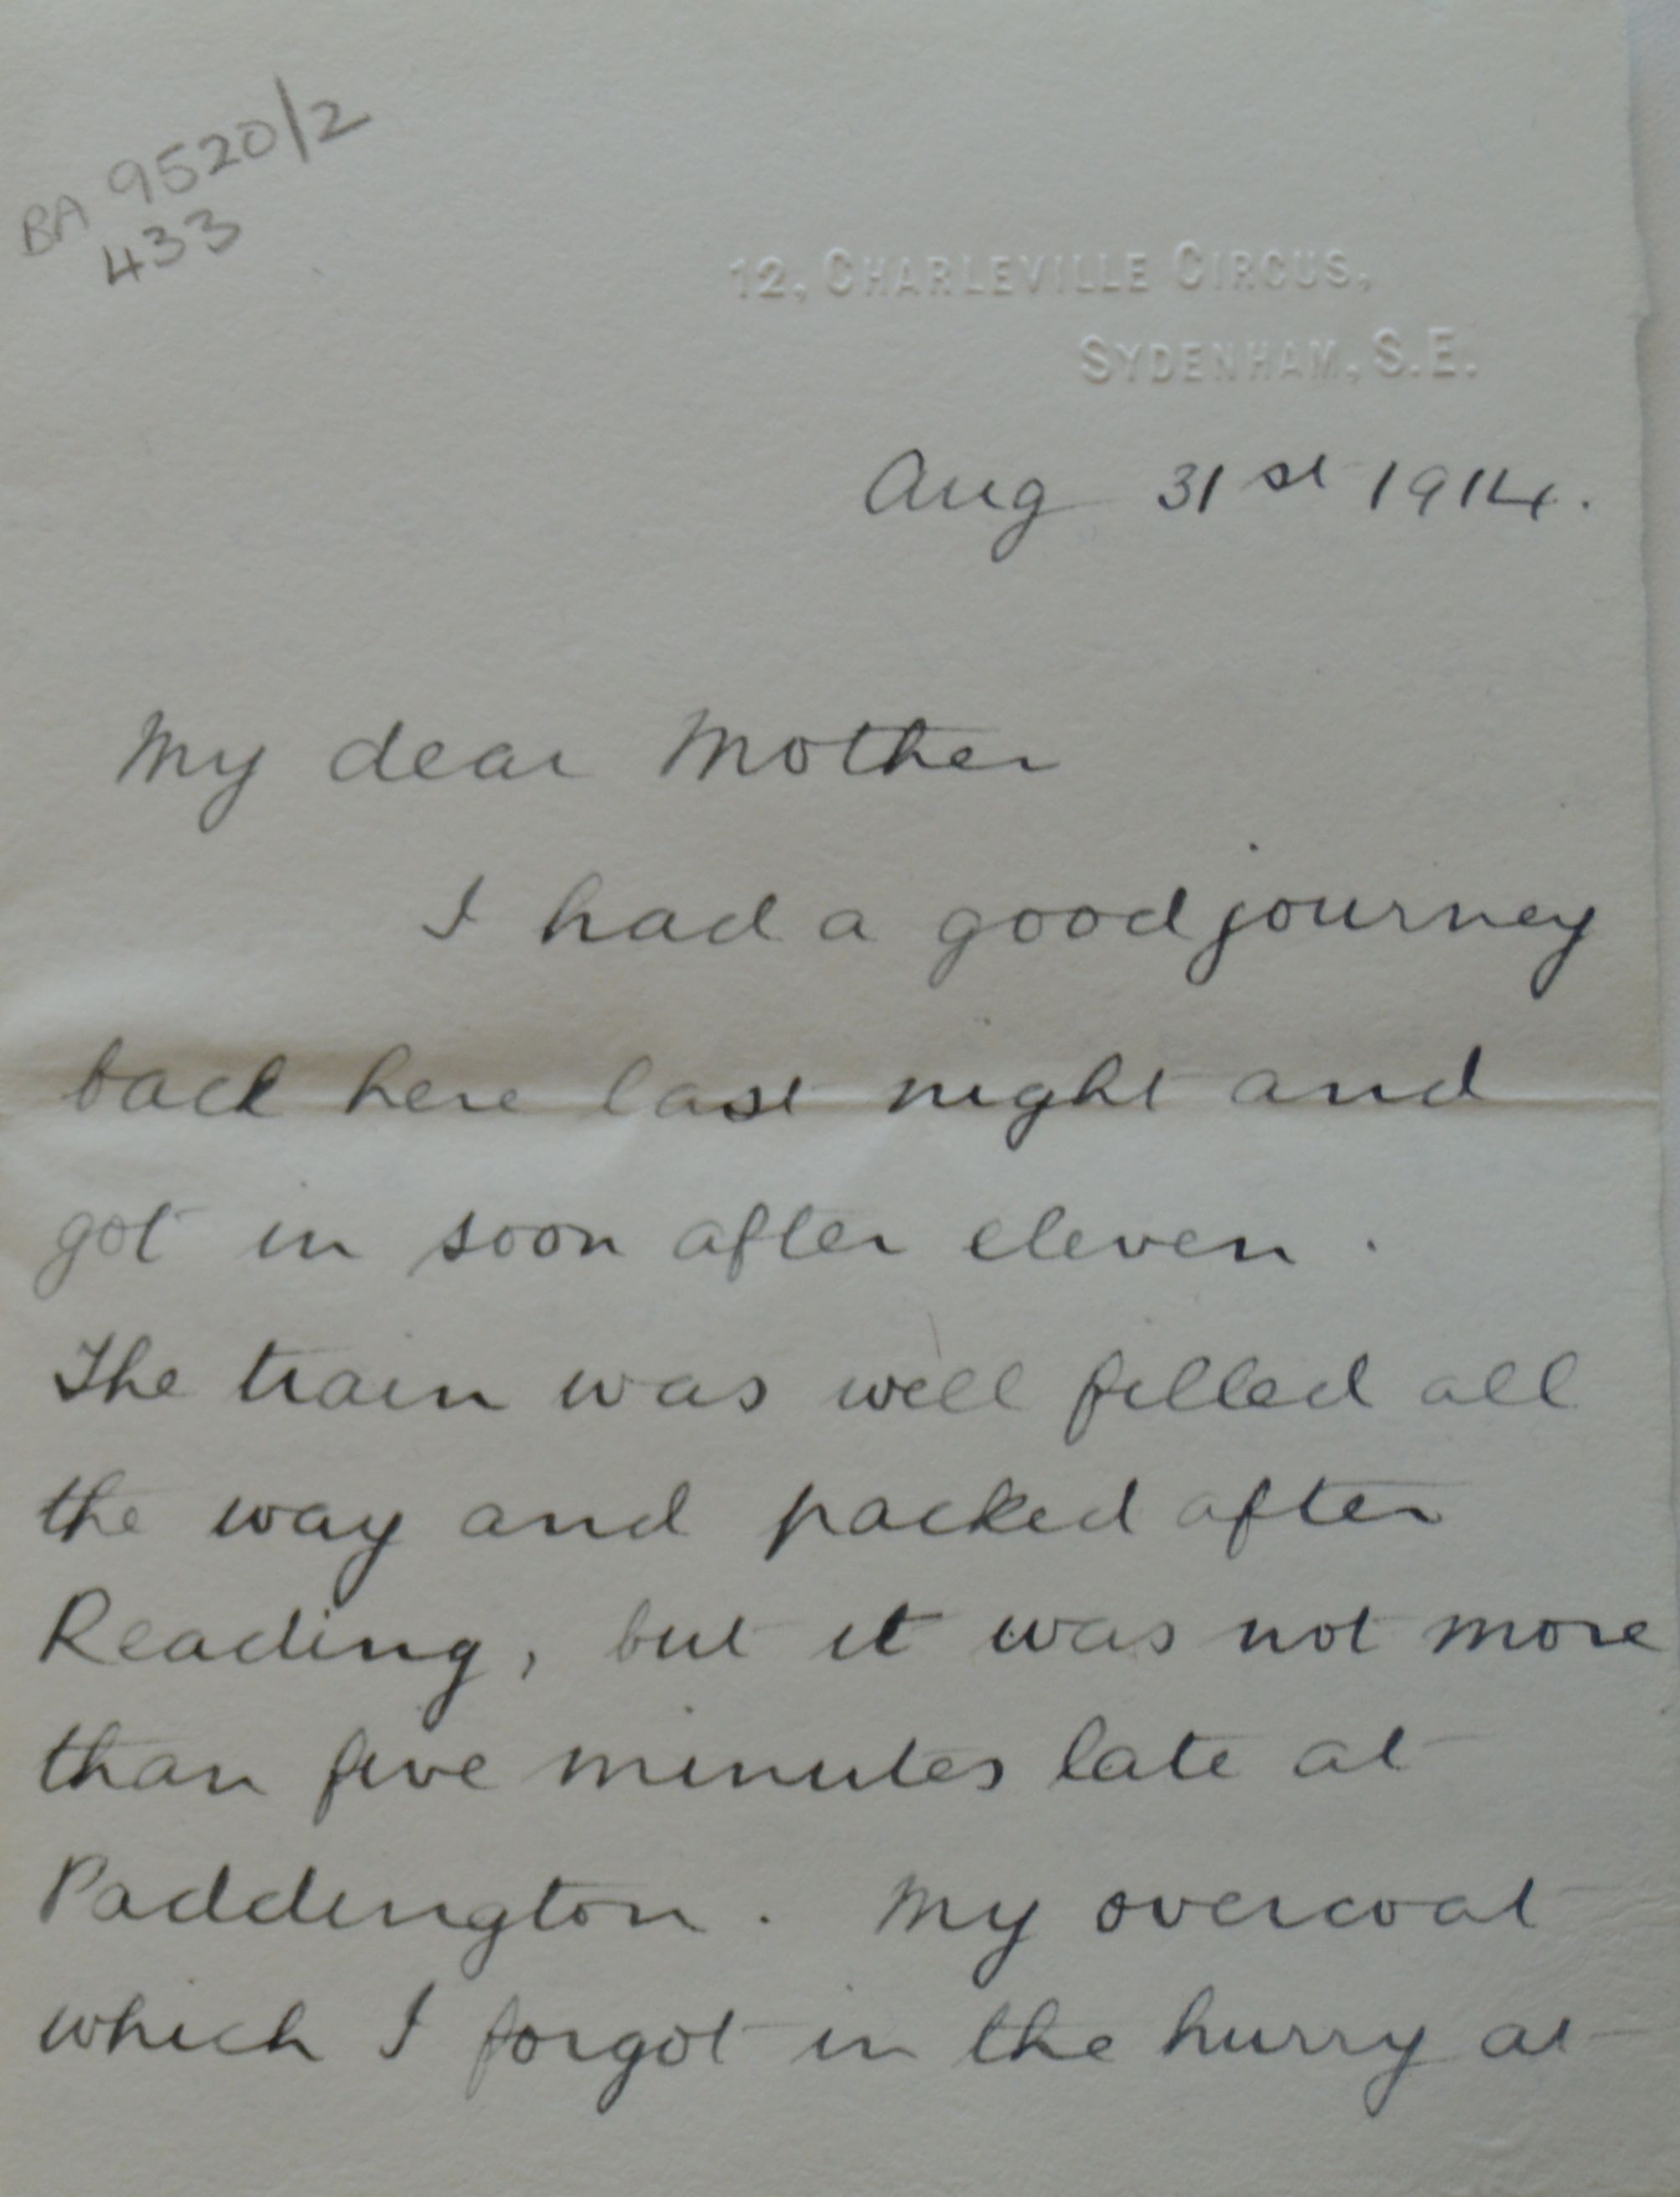 BA 9520/2
433
12, CHARLEVILLE CIRCUS,
SYDENHAM, S.E.
Aug 31st 1914.
My dear Mother
I had a good journey
back here last night and
got in soon after eleven.
The train was well filled all
the way and packed after
Reading, but it was not more
than five minutes late at
Paddington. My overcoat
which I forgot in the hurry at